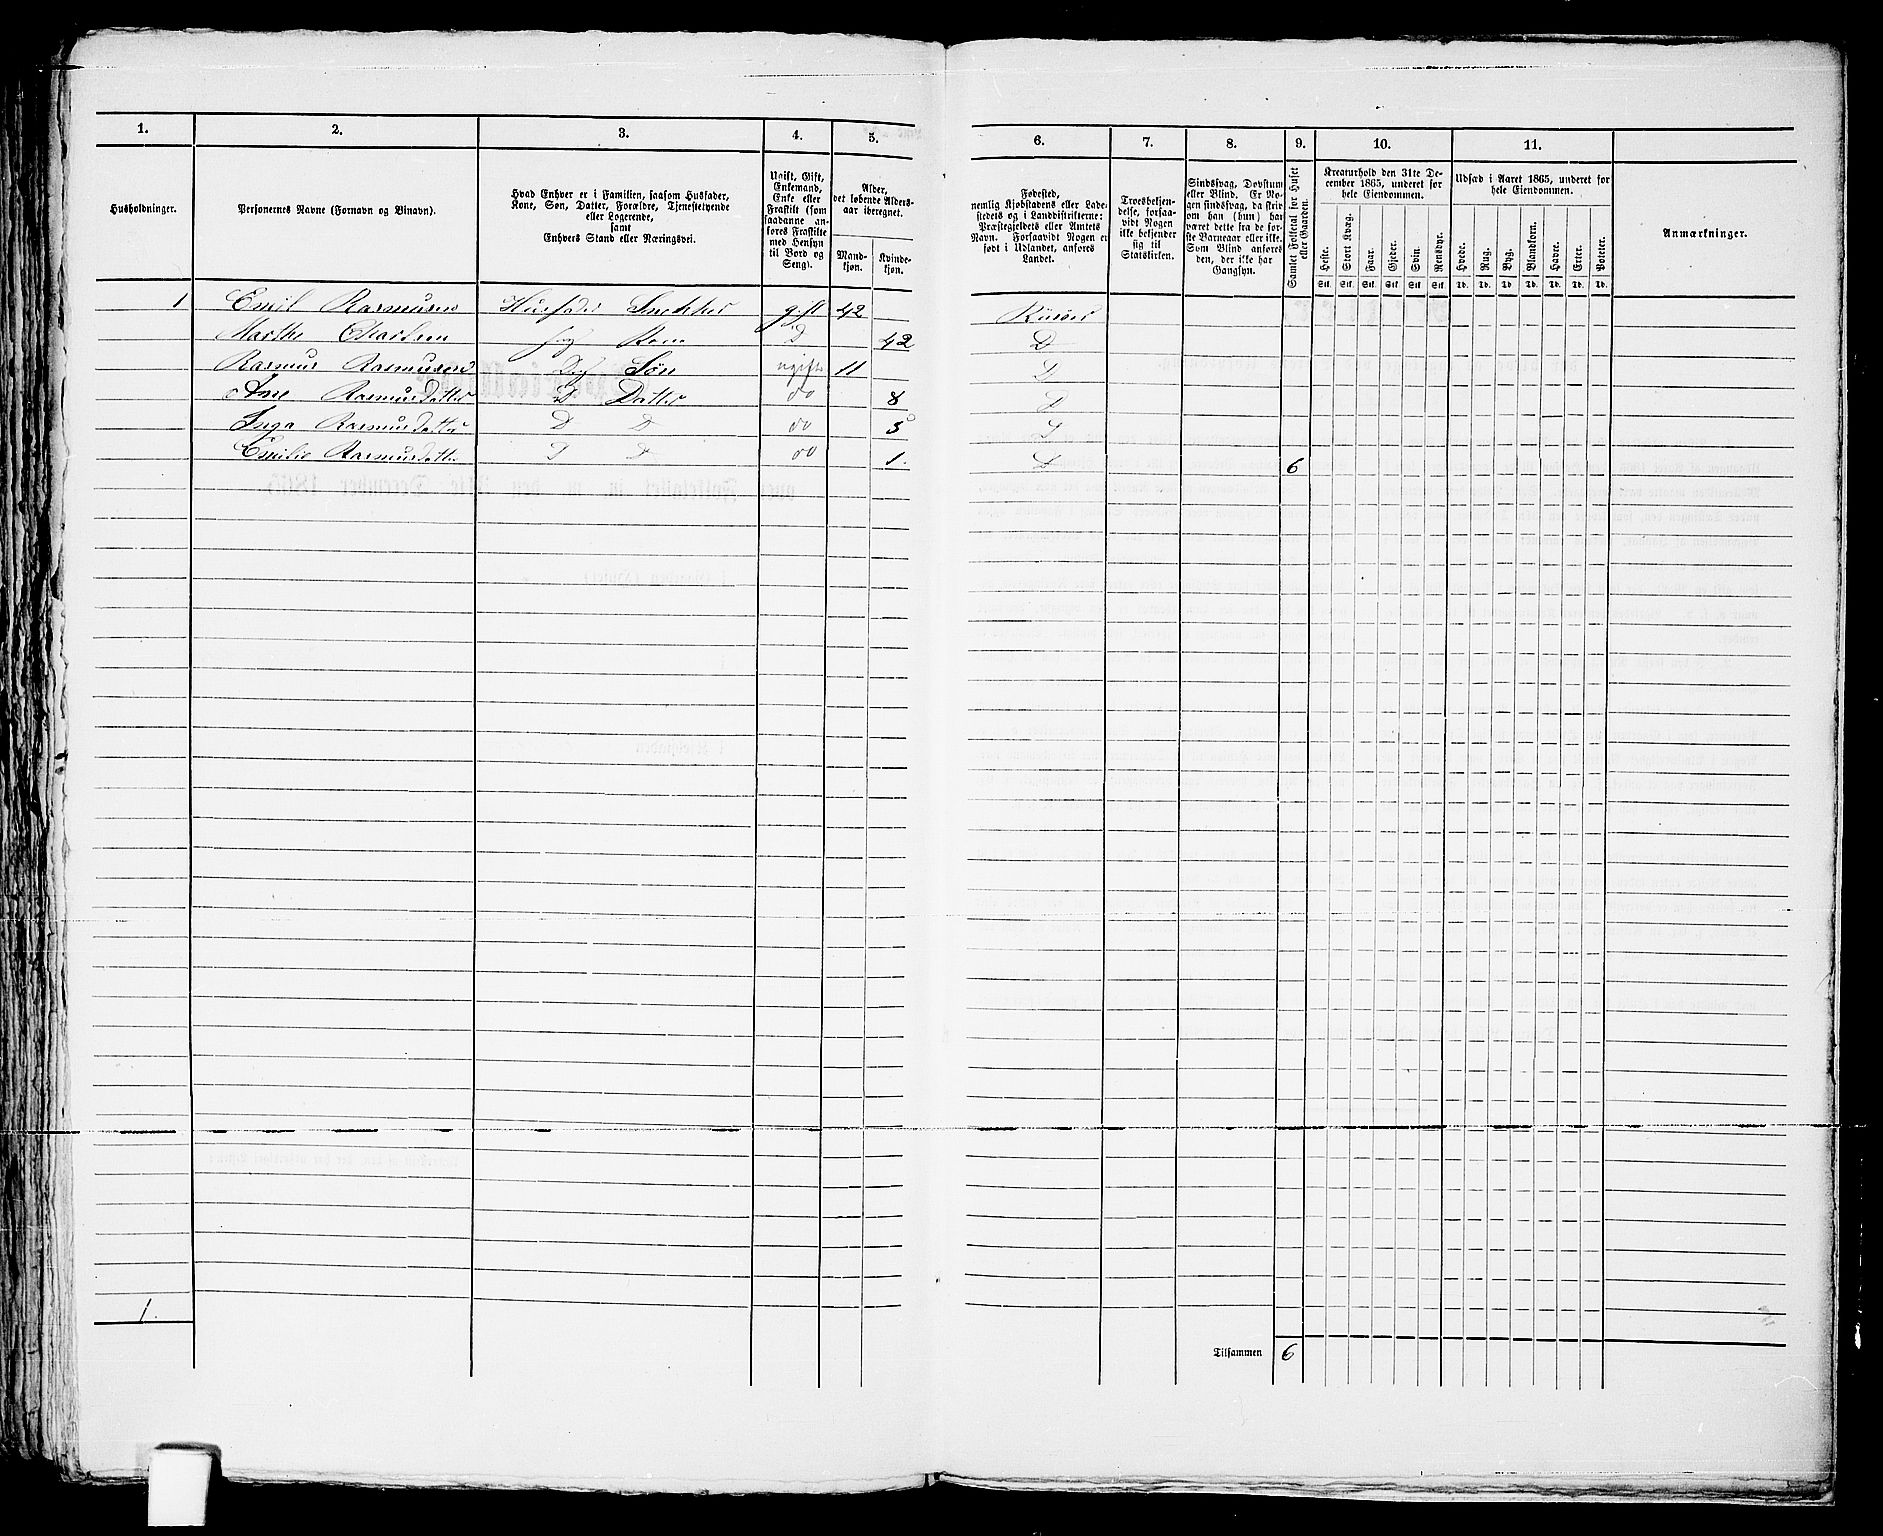 1. 2. 3. 4. 5. 6. 7. 8. 9. 10. 11.
Husholdninger.
Personernes Navne (Fornavn og Binavn).
Hvad Enhver er i Familien, saasom Husfader,
Kone, Søn, Datter, Forældre, Tjenestetyende
eller Logerende,
samt
Enhvers Stand eller Næringsvei.
Ugift, Gift,
Enkemand,
Enke eller
Fraskilt (som
saadanne an-
føres Fraskilte
med Hensyn
til Bord og
Seng).
Alder,
det løbende Alders-
aar iberegnet.
Mand-
kjøn.
Kvinde-
kjøn.
Fødested,
nemlig Kjøbstadens eller Lade-
stedets og i Landdistrikterne:
Præstegjeldets eller Amtets
Navn. Forsaavidt Nogen er
født i Udlandet, anføres
Landet.
Troesbekjen-
delse, forsaa-
vidt Nogen
ikke bekjender
sig til
Statskirken.
Sindssvag, Døvstum
eller Blind. Er No-
gen sindssvag, da skriv
om han (hun) har
været dette fra de før-
ste Barneaar eller ikke.
Som Blind anføres
den, der ikke har
Gangsyn.
Samlet Folketal for Huset
eller Gaarden.
Kreaturhold den 31te De-
cember 1865, underet for
hele Eiendommen.
Heste. Stort Kvæg. Faar. Gjeder. Svin. Rensdyr.
Stk. Stk. Stk. Stk. Stk. Stk.
Udsæd i Aaret 1865, underet for
hele Eiendommen.
Hvede. Rug. Byg. Blandkorn. Havre. Erter. Poteter.
Td. Td. Td. Td. Td. Td. Td.
Anmærkninger.
1 Emil Rasmusen Husfader Snekker gift 42 Riisøer
Marthe Charlsen Kone D 42 D
Rasmus Rasmusen Søn ugift 11 D
Ane Rasmusdatter D Datter do 8 D
Inga Rasmusdatter D D do 5 D
Emilie Rasmusdatter D D do 1. D 6
1.
Tilsammen 6